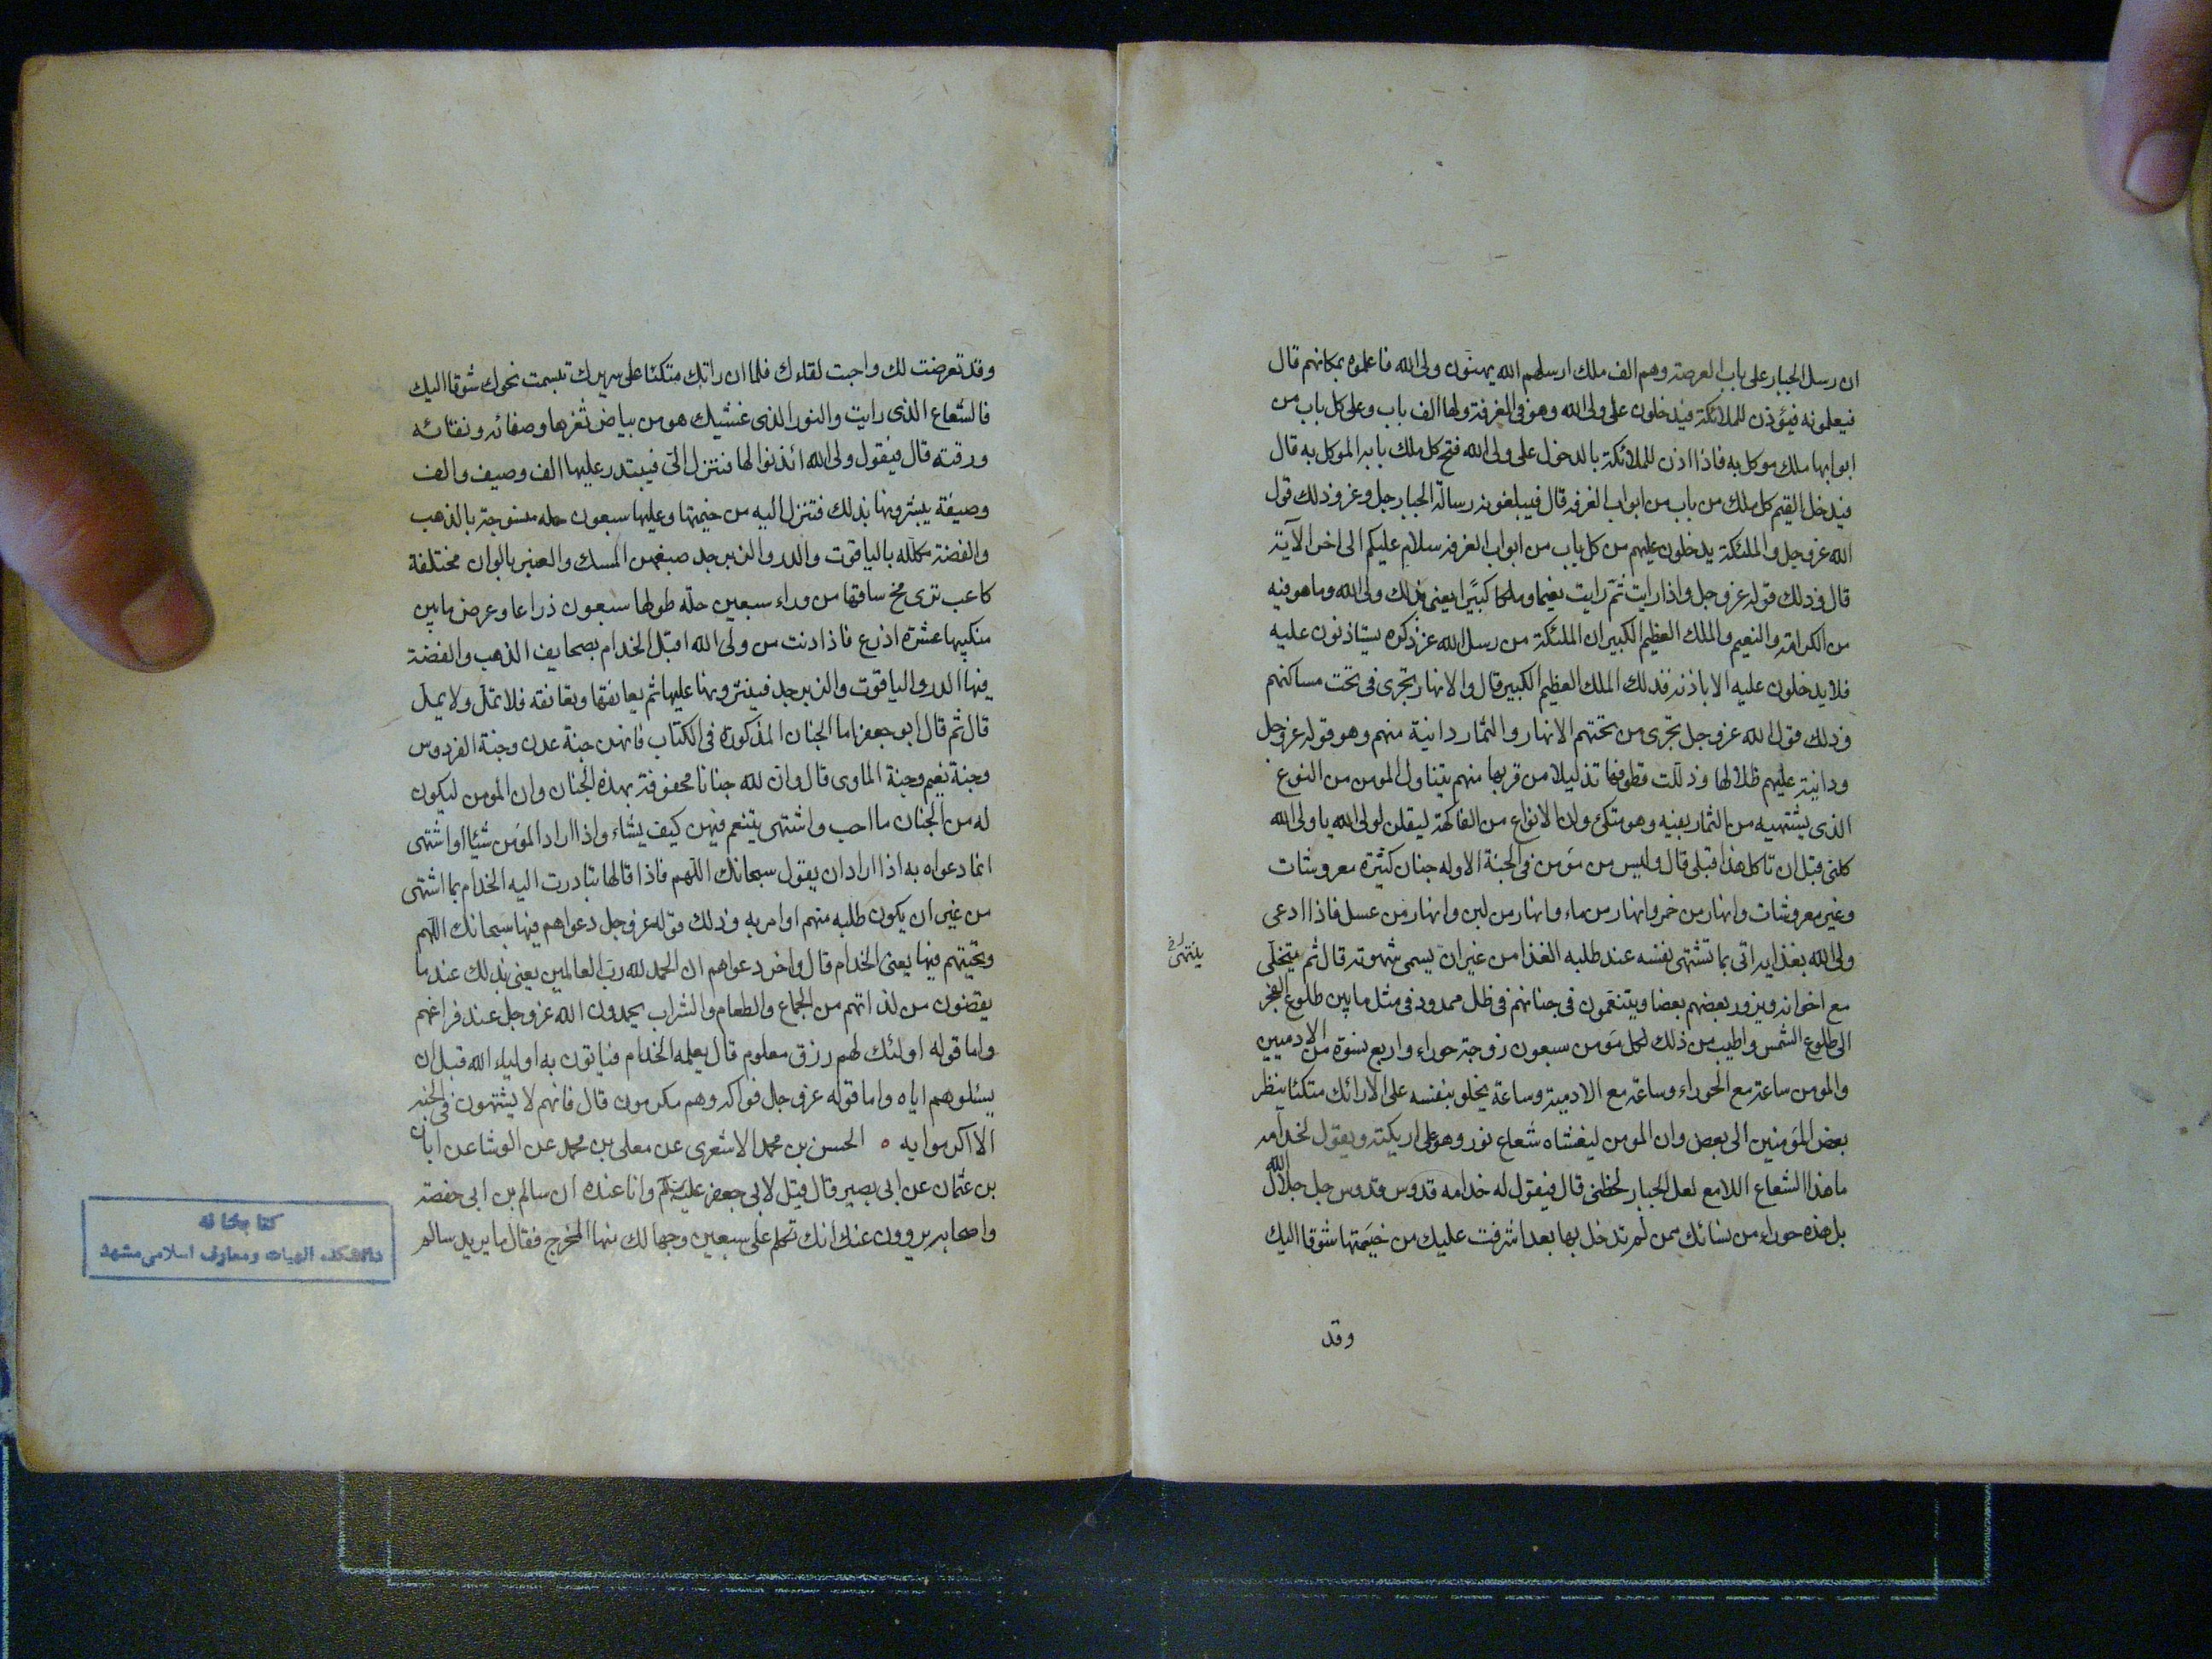 ان رسل الجبار على باب العرصة وهم الف ملك ارسلهم الله يهنئون ولى الله فاعلموه بمكانهم قال
فيعلمونه فيؤذن للملائكة فيدخلون على ولى الله وهو فى الغرفة ولها الف باب وعلى كل باب من
ابوابها ملك موكل به فاذا اذن للملائكة بالدخول على ولى الله فتح كل ملك بابه الموكل به قال
فيدخل القيم كل ملك من باب من ابواب الغرفه قال فيبلغونه رسالة الجبار جل وعز وذلك قول
الله عز وجل والملئكة يدخلون عليهم من كل باب من ابواب الغرفة سلام عليكم الى اخر الآية
قال وذلك قوله عز وجل واذا رايت ثم رايت نعيما وملكا كبيرا يعنى بذلك ولى الله وما هو فيه
من الكرامة والنعيم والملك العظيم الكبير ان الملئكة من رسل الله عز ذكره يستاذنون عليه
فلا يدخلون عليه الا باذنه فذلك الملك العظيم الكبير قال والانهار تجرى فى تحت مساكنهم
وذلك قول الله عز وجل تجرى من تحتهم الانهار والثمار دانية منهم وهو قوله عز وجل
ودانية عليهم ظلالها وذللت قطوفها تذليلا من قربها منهم يتناول المومن من النوع
الذى يشتهيه من الثمار بفيه وهو متكى وان الانواع من الفاكهة ليقلن لولى الله يا ولى الله
كلنى قبل ان تاكل هذا قبلى قال وليس من مؤمن فى الجنة الا وله جنان كثيرة معروشات
وغير معروشات وانهار من خمر وانهار من ماء وانهار من لبن وانهار من عسل فاذا ادعى
ولى الله بغذايه اتى بما تشتهى نفسه عند طلبه الغذا من غير ان يسمى شهوته قال ثم يتخلى
يشتهى
مع اخوانه ويزور بعضهم بعضا ويتنعمون فى جناتهم فى ظل ممدود فى مثل ما بين طلوع الفجر
الى طلوع الشمس واطيب من ذلك لكل مؤمن سبعون زوجة حوراء واربع نسوة من الادميين
والمومن ساعة مع الحوراء وساعة مع الادمية وساعة يخلو بنفسه على الارائك متكئا ينظر
بعض المؤمنين الى بعض وان المومن ليغشاه شعاع نور وهو على اريكته ويقول لخدامه
ما هذا الشعاع اللامع لعل الجبار لحظنى قال فيقول له خدامه قدوس قدوس جل جلال الله
بل هذه حوراء من نسائك ممن لم تدخل بها بعد اشرفت عليك من خيمتها شوقا اليك
وقد
وقد تعرضت لك واحبت لقاءك فلما ان راتك متكئا على سريرك تبسمت نحوك شوقا اليك
فالشعاع الذى رايت والنور الذى غشيك هو من بياض ثغرها وصفائه ونقائه
ورقته قال فيقول ولى الله ائذنوا لها فتنزل الىّ فيبتدر عليها الف وصيف والف
وصيفة يبشرونها بذلك فتنزل اليه من خيمتها وعليها سبعون حله منسوجة بالذهب
والفضة مكلله بالياقوت والدر والزبرجد صبغهن المسك والعنبر بالوان مختلفة
كاعب ترى مخ ساقها من وراء سبعين حلّة طولها سبعون ذراعا وعرض ما بين
منكبيها عشرة اذرع فاذا دنت من ولى الله اقبل الخدام بصحايف الذهب والفضة
فيها الدر والياقوت والزبرجد فينثرونها عليها ثم يعانقها وتعانقه فلا تملّ ولا يملّ
قال ثم قال ابو جعفر اما الجنان المذكورة فى الكتاب فانهن جنة عدن وجنة الفردوس
وجنة نعيم وجنة الماوى قال وان لله جنانا محفوفة بهذه الجنان وان المومن ليكون
له من الجنان ما احب واشتهى يتنعم فيهن كيف يشاء واذا اراد المؤمن شيئا او اشتهى
انما دعواه به اذا اراد ان يقول سبحانك اللهم فاذا قالها تبادرت اليه الخدام بما اشتهى
من غير ان يكون طلبه منهم او امر به وذلك قوله عز وجل دعواهم فيها سبحانك اللهم
وتحيتهم فيها يعنى الخدام قال واخر دعواهم ان الحمد لله ربّ العالمين يعنى بذلك عند ما
يقضون من لذاتهم من الجماع والطعام والشراب يحمدون الله عز وجل عند فراغهم
واما قوله اولئك لهم رزق معلوم قال يعلمه الخدام فياتون به اولياء الله قبل ان
يسئلوهم اياه واما قوله عز وجل فواكه وهم مكرمون قال فانهم لا يشتهون فى الجنة
الا اكرموا به ٥ الحسن بن محمد الاشعرى عن معلى بن محمد عن الوشا عن ابان
بن عثمان عن ابى بصير قال قيل لابى جعفر عليه السلم وانا عنده ان سالم بن ابى حفصة
واصحابه يروون عنك انك تكلم على سبعين وجها لك منها المخرج فقال ما يريد سالم
كتابخانه
دانشكده الهيات ومعارف اسلامى مشهد